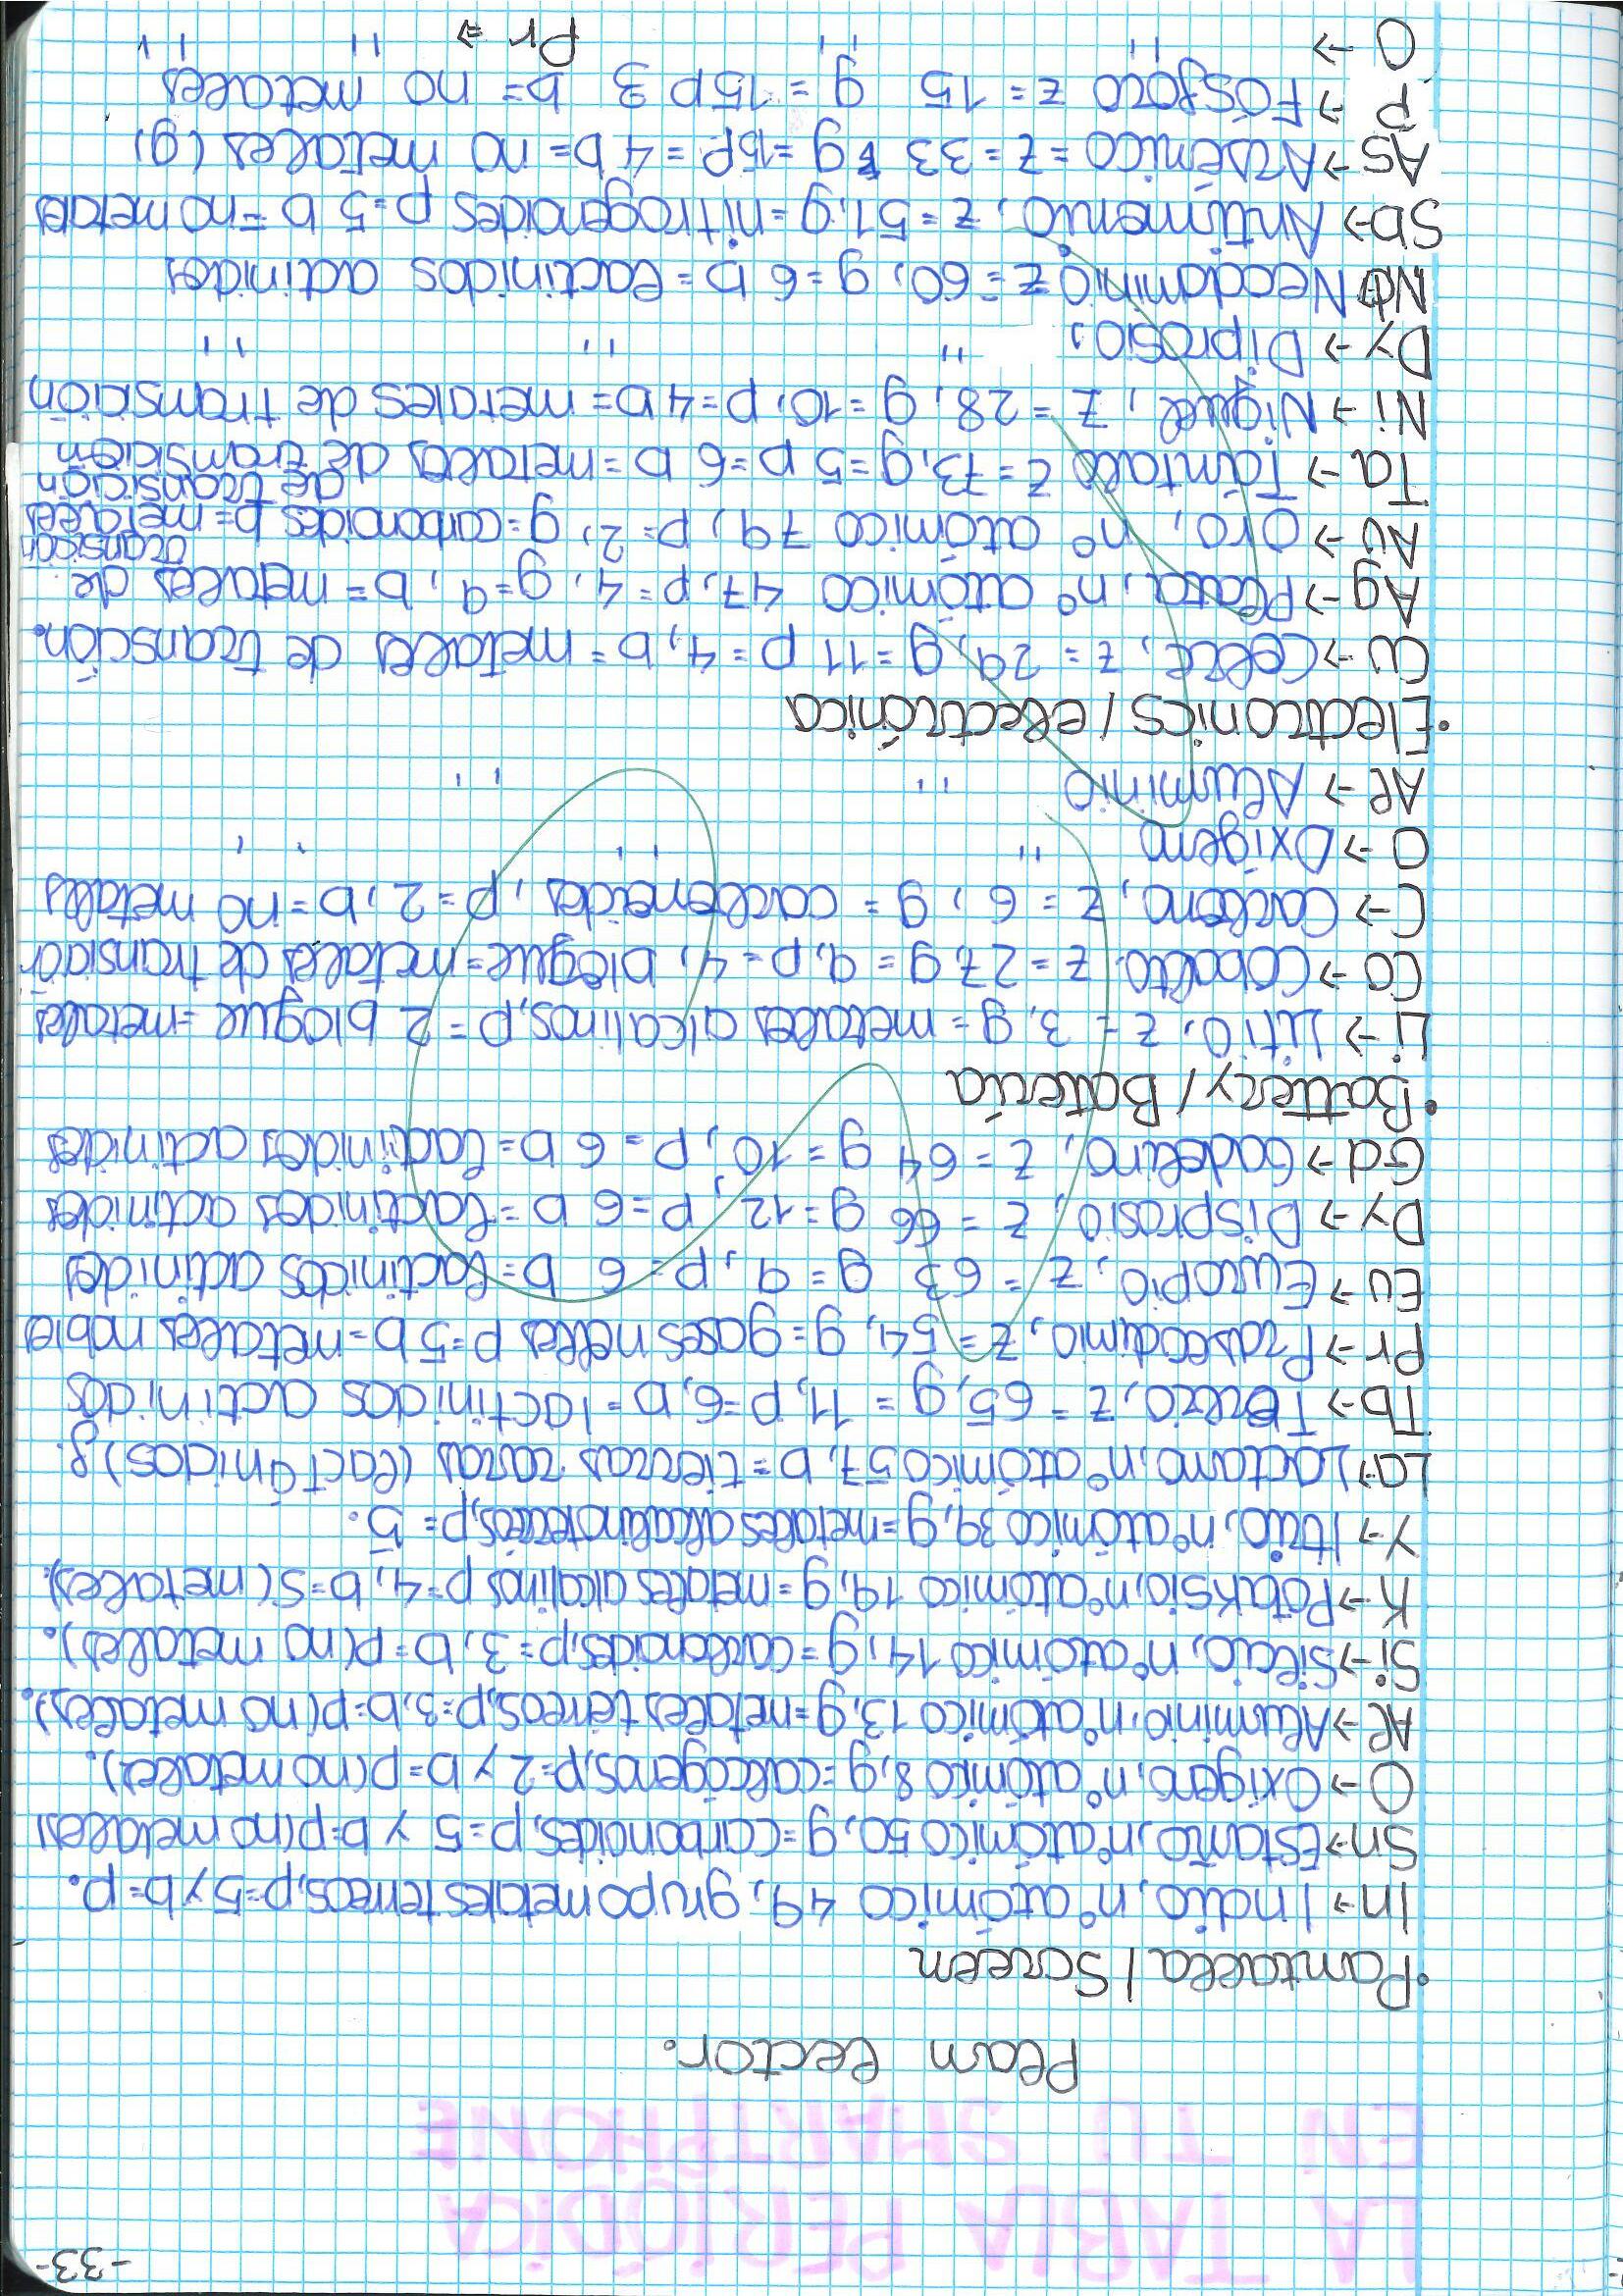 -33-
LA TABLA PERIÓDICA
EN TU SMARTPHONE
Plan lector.
•Pantalla / Screen
In→Indio, nº atómico 49, grupo metales terreos, p=5 y b=p.
Sn→Estaño, nº atómico 50, g=carbonoides, p=5 y b=p(no metales)
O→Oxígeno, nº atómico 8, g=calcógenos, p=2 y b=p(no metales).
Al→Aluminio, nº atómico 13, g=metales térreos, p=3, b=p(no metales).
Si→Silicio, nº atómico 14, g=carbonoides, p=3, b=p(no metales).
K→Potaksio, nº atómico 19, g=metales alcalinos p=4, b=s(metales).
Y→Itrio, nº atómico 39, g=metales alcalinoterreos, p=5.
La→Lactano, nº atómico 57, b=tierras raras (lactánidos) 8.
Tb→Terbio, z=65, g=11, p=6, b=lactinidos actinidos
Pr→Praseodimio, z=54, g=gases nobles p=5 b=metales nobles
Eu→Europio, z=63 g=9, p=6 b=lactinidos actinides
Dy→Disprosio, z=66 g=12, p=6 b=lactinides actinides
Gd→Gadolino, z=64 g=10, p=6 b=lactinides actinides
•Battery / Batería
Li→Litio, z=3, g=metales alcalinos, p=2 bloque=metales
Co→Cobalto, z=27, g=9, p=4, bloque=metales de transición
C→Carbono, z=6, g=carboneides, p=2, b=no metales
O→Oxígeno " " " "
Al→Aluminio " " "
•Electronics / electrónica
Cu→Cobre, z=29, g=11 p=4, b=metales de transción.
Ag→Plata, nº atómico 47, p=4, g=9, b=metales de transición
Au→Oro, nº atómico 79, p=2, g=carbonoides p=metales de transición
Ta→Tántalo z=73, g=5 p=6 b=metales de transición
Ni→Níquel, z=28, g=10, p=4 b=metales de transición
Dy→Diprosio, " " " "
Nd→Neodaminio z=60, g=6 b=lactinidos actinides
Sb→Antimonio, z=51, g=nitrogenoides p=5 b=no metales
As→Arsénico=z=33 g=15 p=4 b=no metales (g)
P→Fósforo z=15 g=15 p 3 b=no metales
O→ " " Pr⇒ " " "